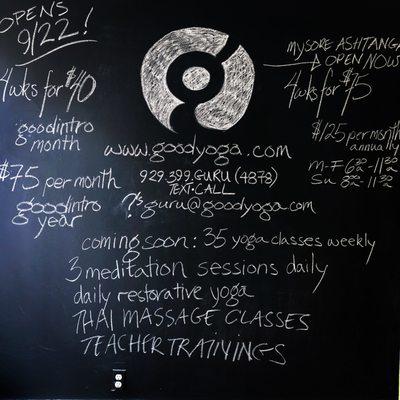 OPENS
9/22!
4wks for $40
goodintro
month
$75 per month
goodintro
year
MYSORE ASHTANGA
OPEN NOW
4wks for $75
$125 per month
annually
M-F 6:30a-11:30a
Su 8:00a-11:30a
www.goodyoga.com
929.399.GURU (4878)
TEXT•CALL
?'s guru@goodyoga.com
coming soon: 35 yoga classes weekly
3 meditation sessions daily
daily restorative yoga
THAI MASSAGE CLASSES
TEACHER TRAININGS